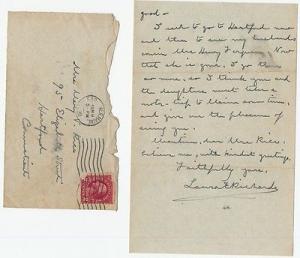 Mrs
95 Elizabeth Street
Hartford
Connecticut
good –
I used to go to Hartford now
and then to see my husband's
cousin Mrs Henry Ferguson. Now
that she is gone, I go there
no more, so I think you and
the daughters must take a
motor-trip to Maine some time,
and give me the pleasure of
seeing you.
Meantime, dear Mrs Rice,
believe me, with kindest greetings,
Faithfully yours,
Laura E Richards